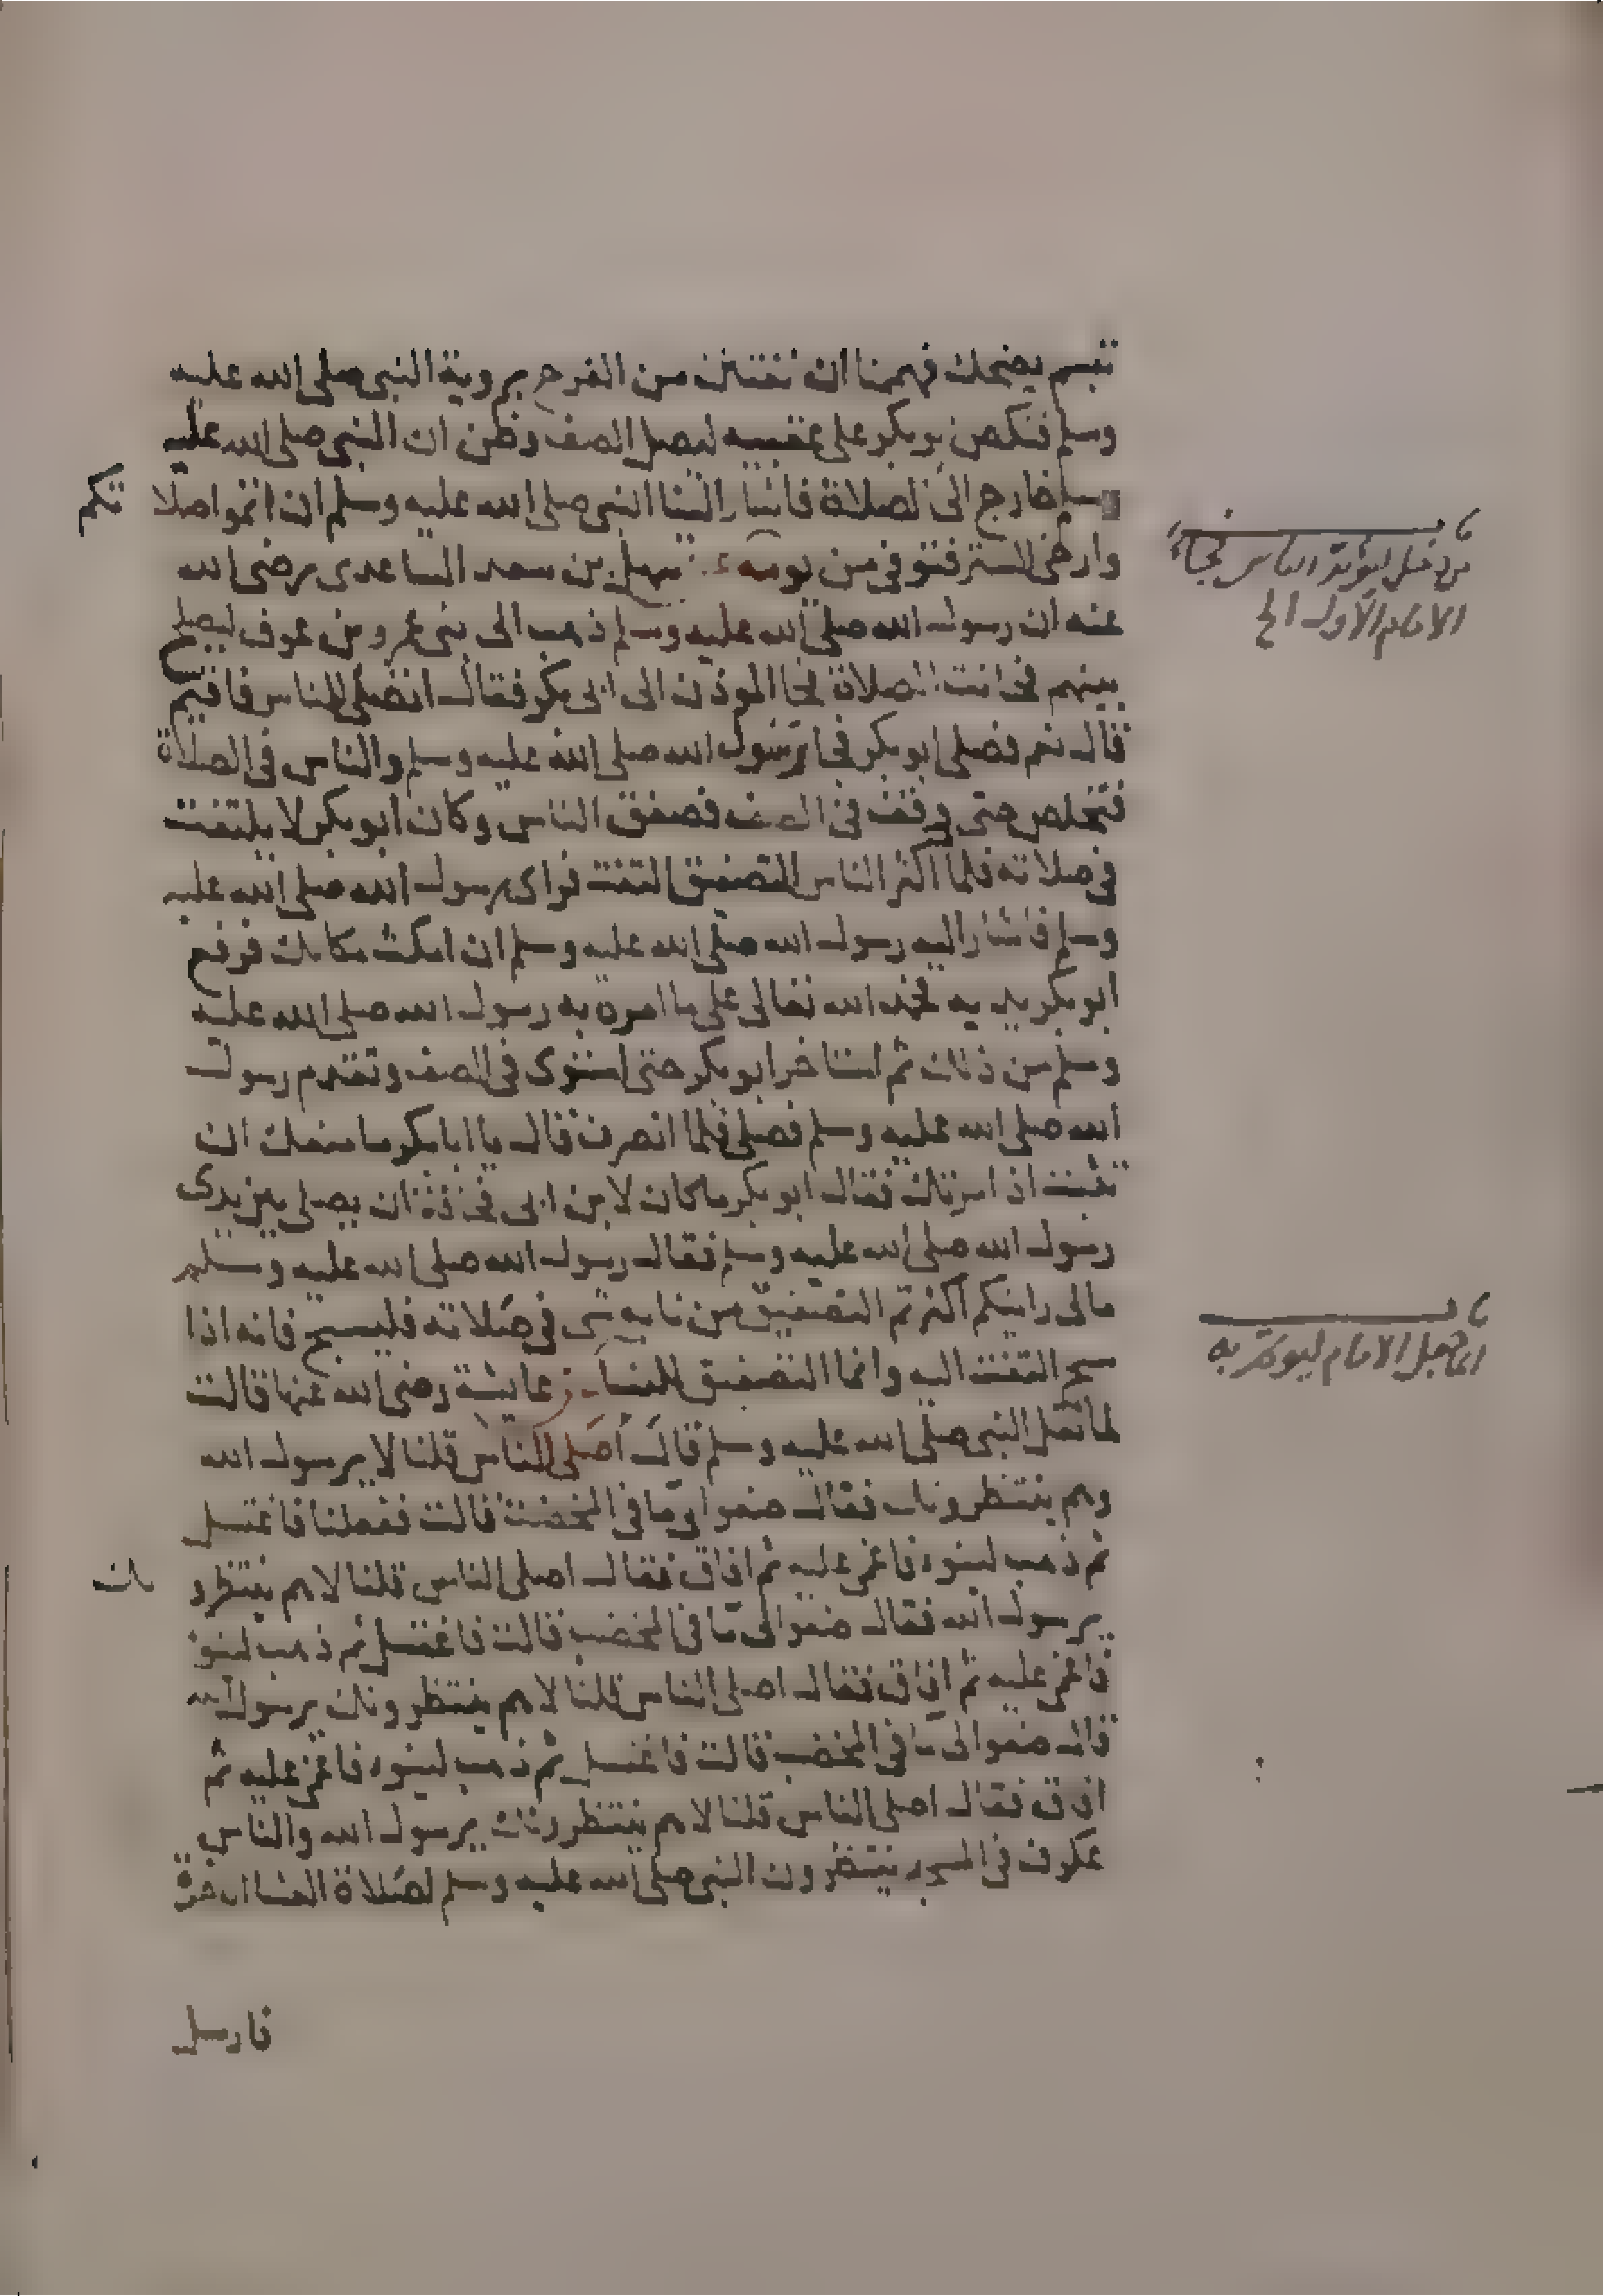 تبسم يضحك فهممنا ان نفتتن من الفرح بروية النبي صلى الله عليه
وسلم فنكص بو بكر على عقبيه ليصل الصف وظن ان النبي صلى الله عليه
وسلم خارج الى الصلاة فاشار الينا النبي صلى الله عليه وسلم ان اتموا صلا تكم
وارخى الستر فتوفى من يومه سهل بن سعد الساعدى رضى الله
عنه ان رسول الله صلى الله عليه وسلم ذهب الى بنى عمرو بن عوف ليصلح
بينهم فحانت الصلاة فجا الموذن الى ابى بكر فقال اتصلى للناس فاقيم
قال نعم فصلى ابو بكر فجا رسول الله صلى الله عليه وسلم والناس فى الصلاة
فتخلص حتى وقف فى الصف فصفق الناس وكان ابو بكر لا يلتفت
فى صلاته فلما اكثر الناس التصفيق التفت فراى رسول الله صلى الله عليه
وسلم فاشار اليه رسول الله صلى الله عليه وسلم ان امكث مكانك فرفع
ابو بكر يديه فحمد الله تعالى على ما امره به رسول الله صلى الله عليه
وسلم من ذلك ثم استاخر ابو بكر حتى استوى فى الصف وتقدم رسول
الله صلى الله عليه وسلم فصلى فلما انصرف قال يا ابا بكر ما منعك ان
تثبت اذ امرتك فقال ابو بكر ما كان لابن ابى قحافة ان يصلى بين يدى
رسول الله صلى الله عليه وسلم فقال رسول الله صلى الله عليه وسلم
مالى رايتكم اكثرتم التصفيق من نابه شى فى صلاته فليسبح فانه اذا
سبح التفت اليه وانما التصفيق للنساء عايشة رضى الله عنها قالت
لما ثقل النبى صلى الله عليه وسلم قال اصلى الناس قلنا لا يرسول الله
وهم ينتظرونك فقال ضعوا لى ما فى المخضب قالت ففعلنا فاغتسل
ثم ذهب لينوء فاغمى عليه ثم افاق فقال اصلى الناس قلنا لا هم ينتظرو نك
يرسول الله فقال ضعوا لى ما فى المخضب قالت فاغتسل ثم ذهب لينو
فاغمى عليه ثم افاق فقال اصلى الناس قلنا لا هم ينتظرونك يرسول الله
قال ضعوا لى ما فى المخضب قالت فاغتسل ثم ذهب لينوء فاغمى عليه ثم
افاق فقال اصلى الناس قلنا لا هم ينتظرونك يرسول الله والناس
عكوف فى المسجد ينتظرون النبى صلى الله عليه وسلم لصلاة العشا الاخرة
فارسل
باب
من دخل ليوم الناس فجاء
الامام الاول الخ
باب
انما جعل الامام ليوتم به